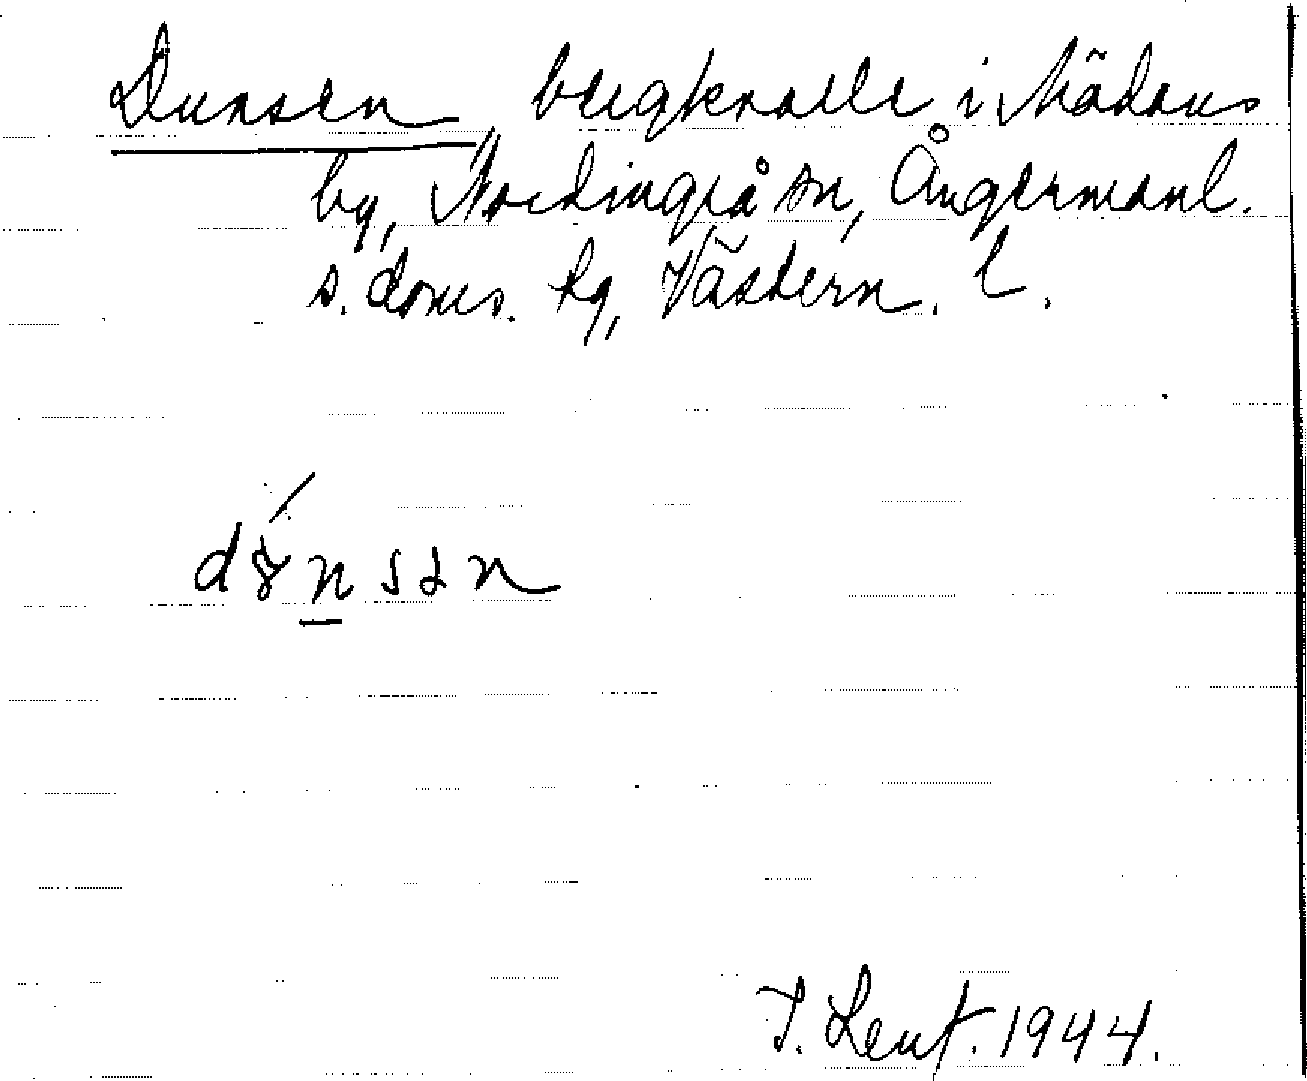 Dunsen, bergknalle i Mädans
by, Nordingrå sn, Ångermanl.
s. doms. hg, Västern. l.
dńsən
T. Lent. 1944.